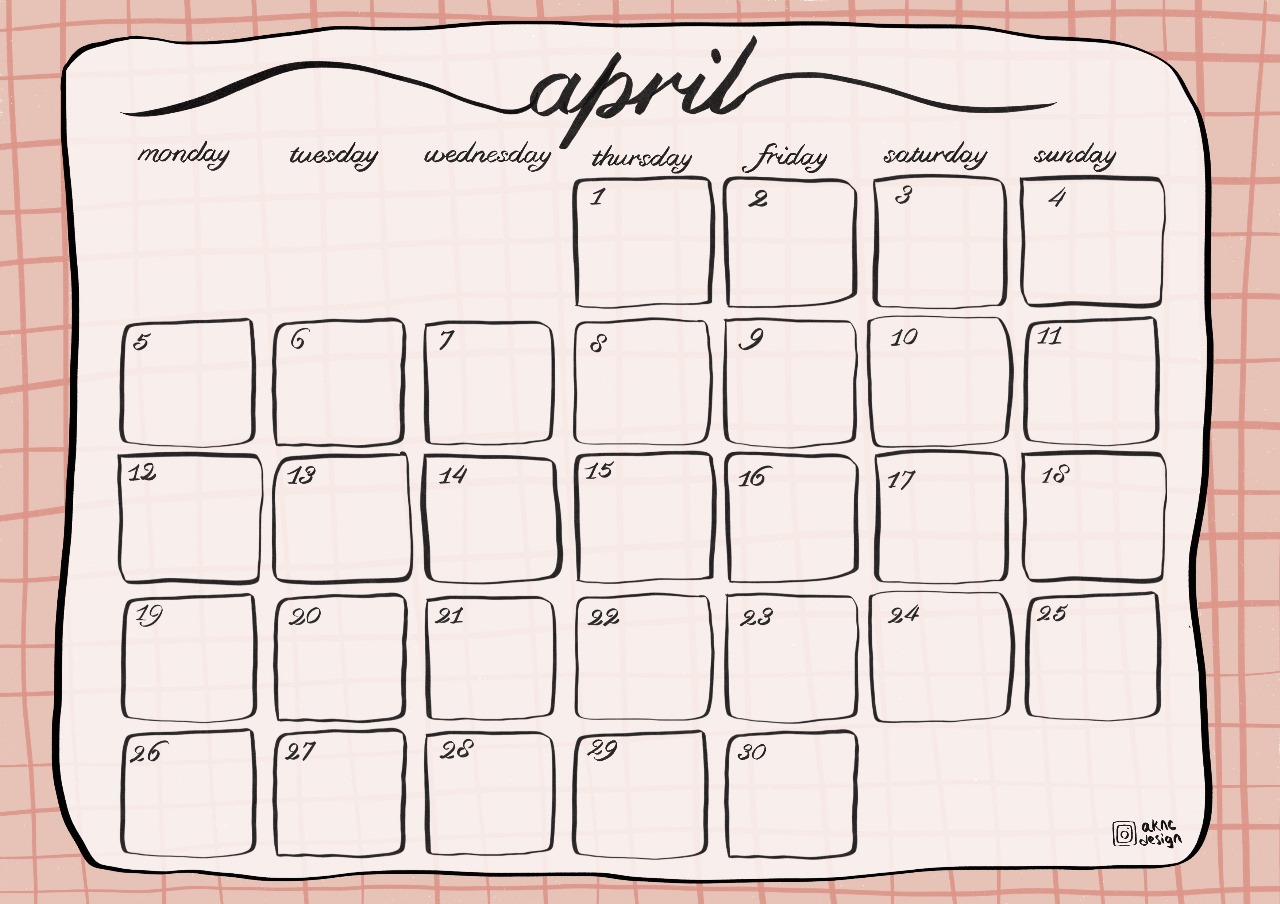 april
monday tuesday wednesday thursday friday saturday sunday
1 2 3 4
5 6 7 8 9 10 11
12 13 14 15 16 17 18
19 20 21 22 23 24 25
26 27 28 29 30
aknc
design